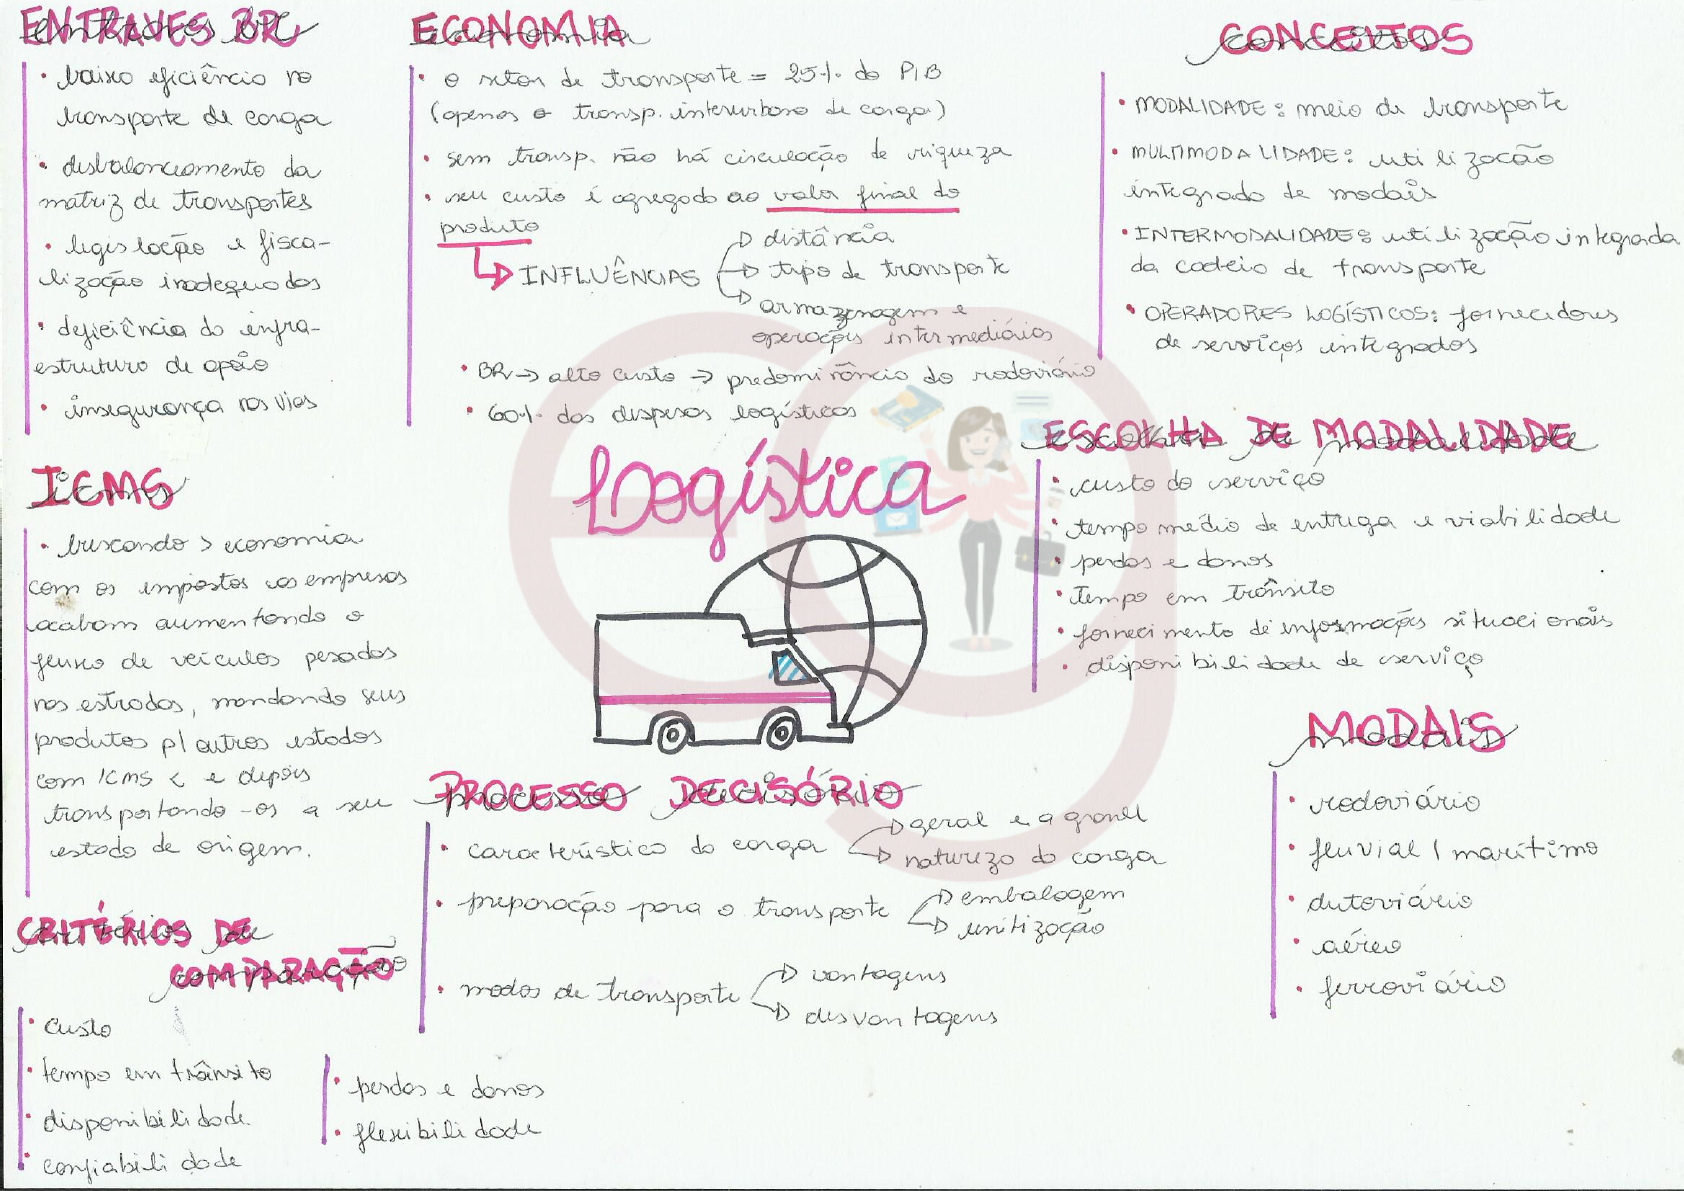 ENTRAVES BR
• baixa eficiência no
transporte de carga
• desbalanceamento da
matriz de transportes
• legislação e fisca-
lização inadequadas
• deficiência da infra-
estrutura de apoio
• insegurança nas vias
ICMS
• buscando > economia
com os impostos as empresas
acabam aumentando o
fluxo de veículos pesados
nas estradas, mandando seus
produtos p/ outros estados
com ICMS < e depois
transportando-os a seu
estado de origem.
CRITÉRIOS DE
COMPARAÇÃO
• custo
• tempo em trânsito
• disponibilidade
• confiabilidade
• perdas e danos
• flexibilidade
ECONOMIA
• o setor de transporte = 25% do PIB
(apenas o transp. interurbano de carga)
• sem transp. não há circulação de riqueza
• seu custo é agregado ao valor final do
produto
INFLUÊNCIAS
distância
tipo de transporte
armazenagem e
operações intermediárias
• BR → alto custo → predominância do rodoviário
• 60% das despesas logísticas
Logística
PROCESSO DECISÓRIO
• característica da carga
geral e a granel
natureza da carga
• preparação para o transporte
embalagem
unitização
• modos de transporte
vantagens
desvantagens
CONCEITOS
• MODALIDADE: meio de transporte
• MULTIMODALIDADE: utilização
integrada de modais
• INTERMODALIDADE: utilização integrada
da cadeia de transporte
• OPERADORES LOGÍSTICOS: fornecedores
de serviços integrados
ESCOLHA DE MODALIDADE
• custo do serviço
• tempo médio de entrega e viabilidade
• perdas e danos
• tempo em trânsito
• fornecimento de informações situacionais
• disponibilidade de serviço
MODAIS
• rodoviário
• fluvial / marítimo
• dutoviário
• aéreo
• ferroviário